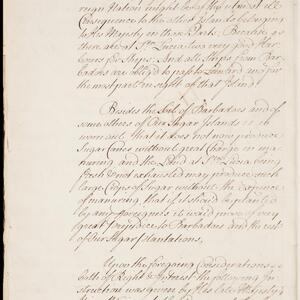 reign Nation might be of the utmost ill
Consequence to the other Islands belonging
to His Majesty in those Parts: Because as
there are at St. Lucia two very good Har-
bours for Ships. And all Ships from Bar-
badoes are oblig'd to pass to Leeward and for
the most part in sight of that Island.
Besides the Soil of Barbadoes and of
some others of Our Sugar Islands is so
worn out that it does not now produce
Sugar Canes without great Charge in ma-
nuring and the Land at St. Lucia being
fresh & not exhausted may produce such
large Crops of Sugar without the Expence
of manuring, that if it should be planted
by any Foreigners it would prove of very
great prejudice to Barbadoes and the rest
of Our Sugar plantations.
Upon the foregoing Considerations
both of Right & Interest the following In-
struction was given by His late Majesty